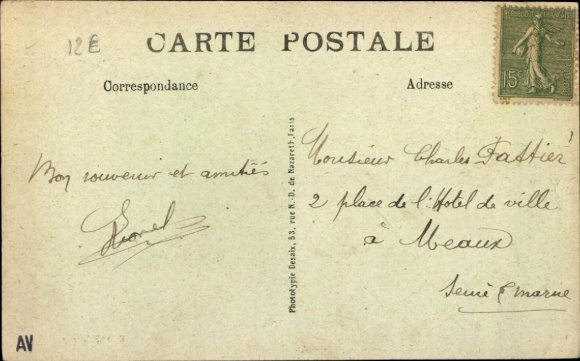 12E
CARTE POSTALE
Correspondance
Adresse
15
Bon souvenir et amitiés
Lionel
Phototypie Desaix, 53, rue N.-D. de Nazareth, Paris
Monsieur Charles Fattier
2 place de l'Hotel de ville
à Meaux
Seine & marne
AV